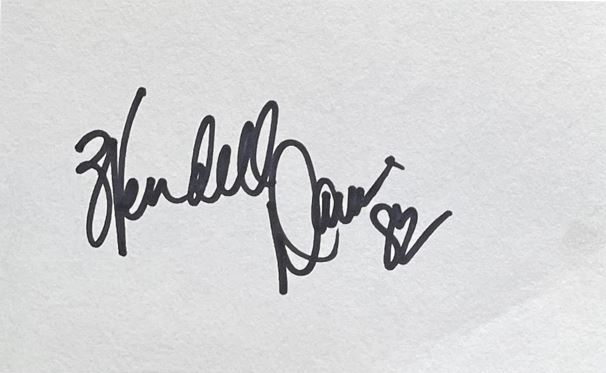 Wendell Davis 82